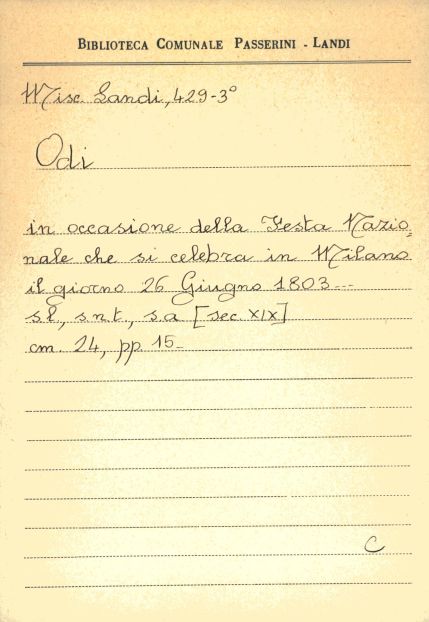 BIBLIOTECA COMUNALE PASSERINI - LANDI
Misc. Landi, 429-3°
Odi
in occasione della Festa Nazio=
nale che si celebra in Milano
il giorno 26 Giugno 1803...
s.l., s.n.t., s.a [sec XIX]
cm. 24, pp 15-
C